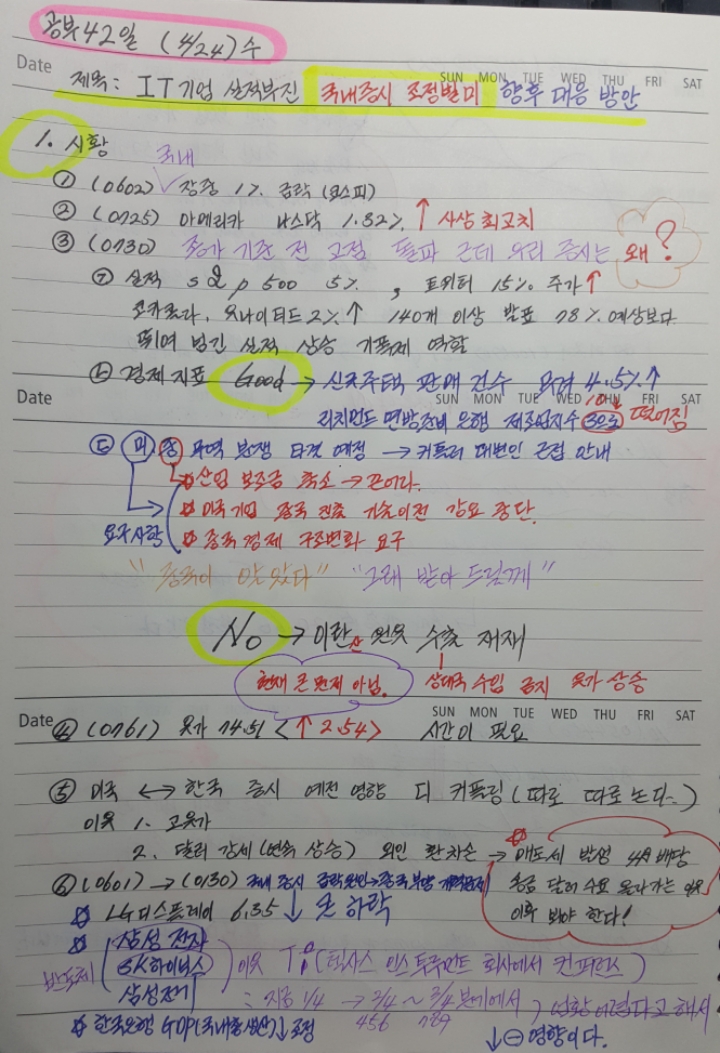 공부42일 (4/24) 수
Date SUN MON TUE WED THU FRI SAT
제목: IT기업 실적부진 국내증시 조정빌미 향후 대응 방안
1. 시황
국내
① (0602) 장중 1% 급락 (코스피)
② (0725) 아메리카 나스닥 1.32% ↑ 사상 최고치
③ (0730) 종가 기준 전 고점 돌파 근데 우리 증시는 왜?
㉠ 실적 s&p 500 5%, 트위터 15% 주가↑
코카콜라, 유나이티드 2%↑ 140개 이상 발표 78% 예상보다
뛰어 넘긴 실적 상승 기폭제 역할
㉡ 경제지표 Good → 신규주택 판매 건수 4.5%↑
Date SUN MON TUE WED THU FRI SAT
리치먼드 연방준비 은행 제조업지수 떨어짐
㉢ 미 중 무역 분쟁 타결 예정 → 커들러 대변인 근접 안내
산업 보조금 축소 → 끈어라.
미국기업 중국 진출 기술이전 강요 중단.
요구사항 중국경제 구조변화 요구
"중국이 알았다" "그래 받아 드릴게"
No → 이란산 원유 수출 제재
현재 큰 문제 아님. 상대국 수입 금지 유가 상승
Date SUN MON TUE WED THU FRI SAT
④ (0761) 유가 74.51 <↑ 2.54> 시간이 필요
⑤ 미국 ↔ 한국 증시 예전 영향 디 커플링 (따로 따로 논다..)
이유 1. 고유가
2. 달러 강세 (연속 상승) 외인 환차손 → 매도세 발생 4월 배당
송금 달러 수요 올라가는
이후 봐야 한다!
⑥ (0601) → (0130) 국내 증시
LG디스플레이 6.35 ↓ 큰 하락
반도체 삼성전자
SK하이닉스 이유 Ti (텍사스 인스트루먼트 회사에서 컨퍼런스)
삼성전기 : 지금 1/4 → 2/4 ~ 3/4 분기에서 업황 어렵다고 해서
456 789
한국은행 GDP(국내총생산)↓ 조정 ↓⊖ 영향이다.